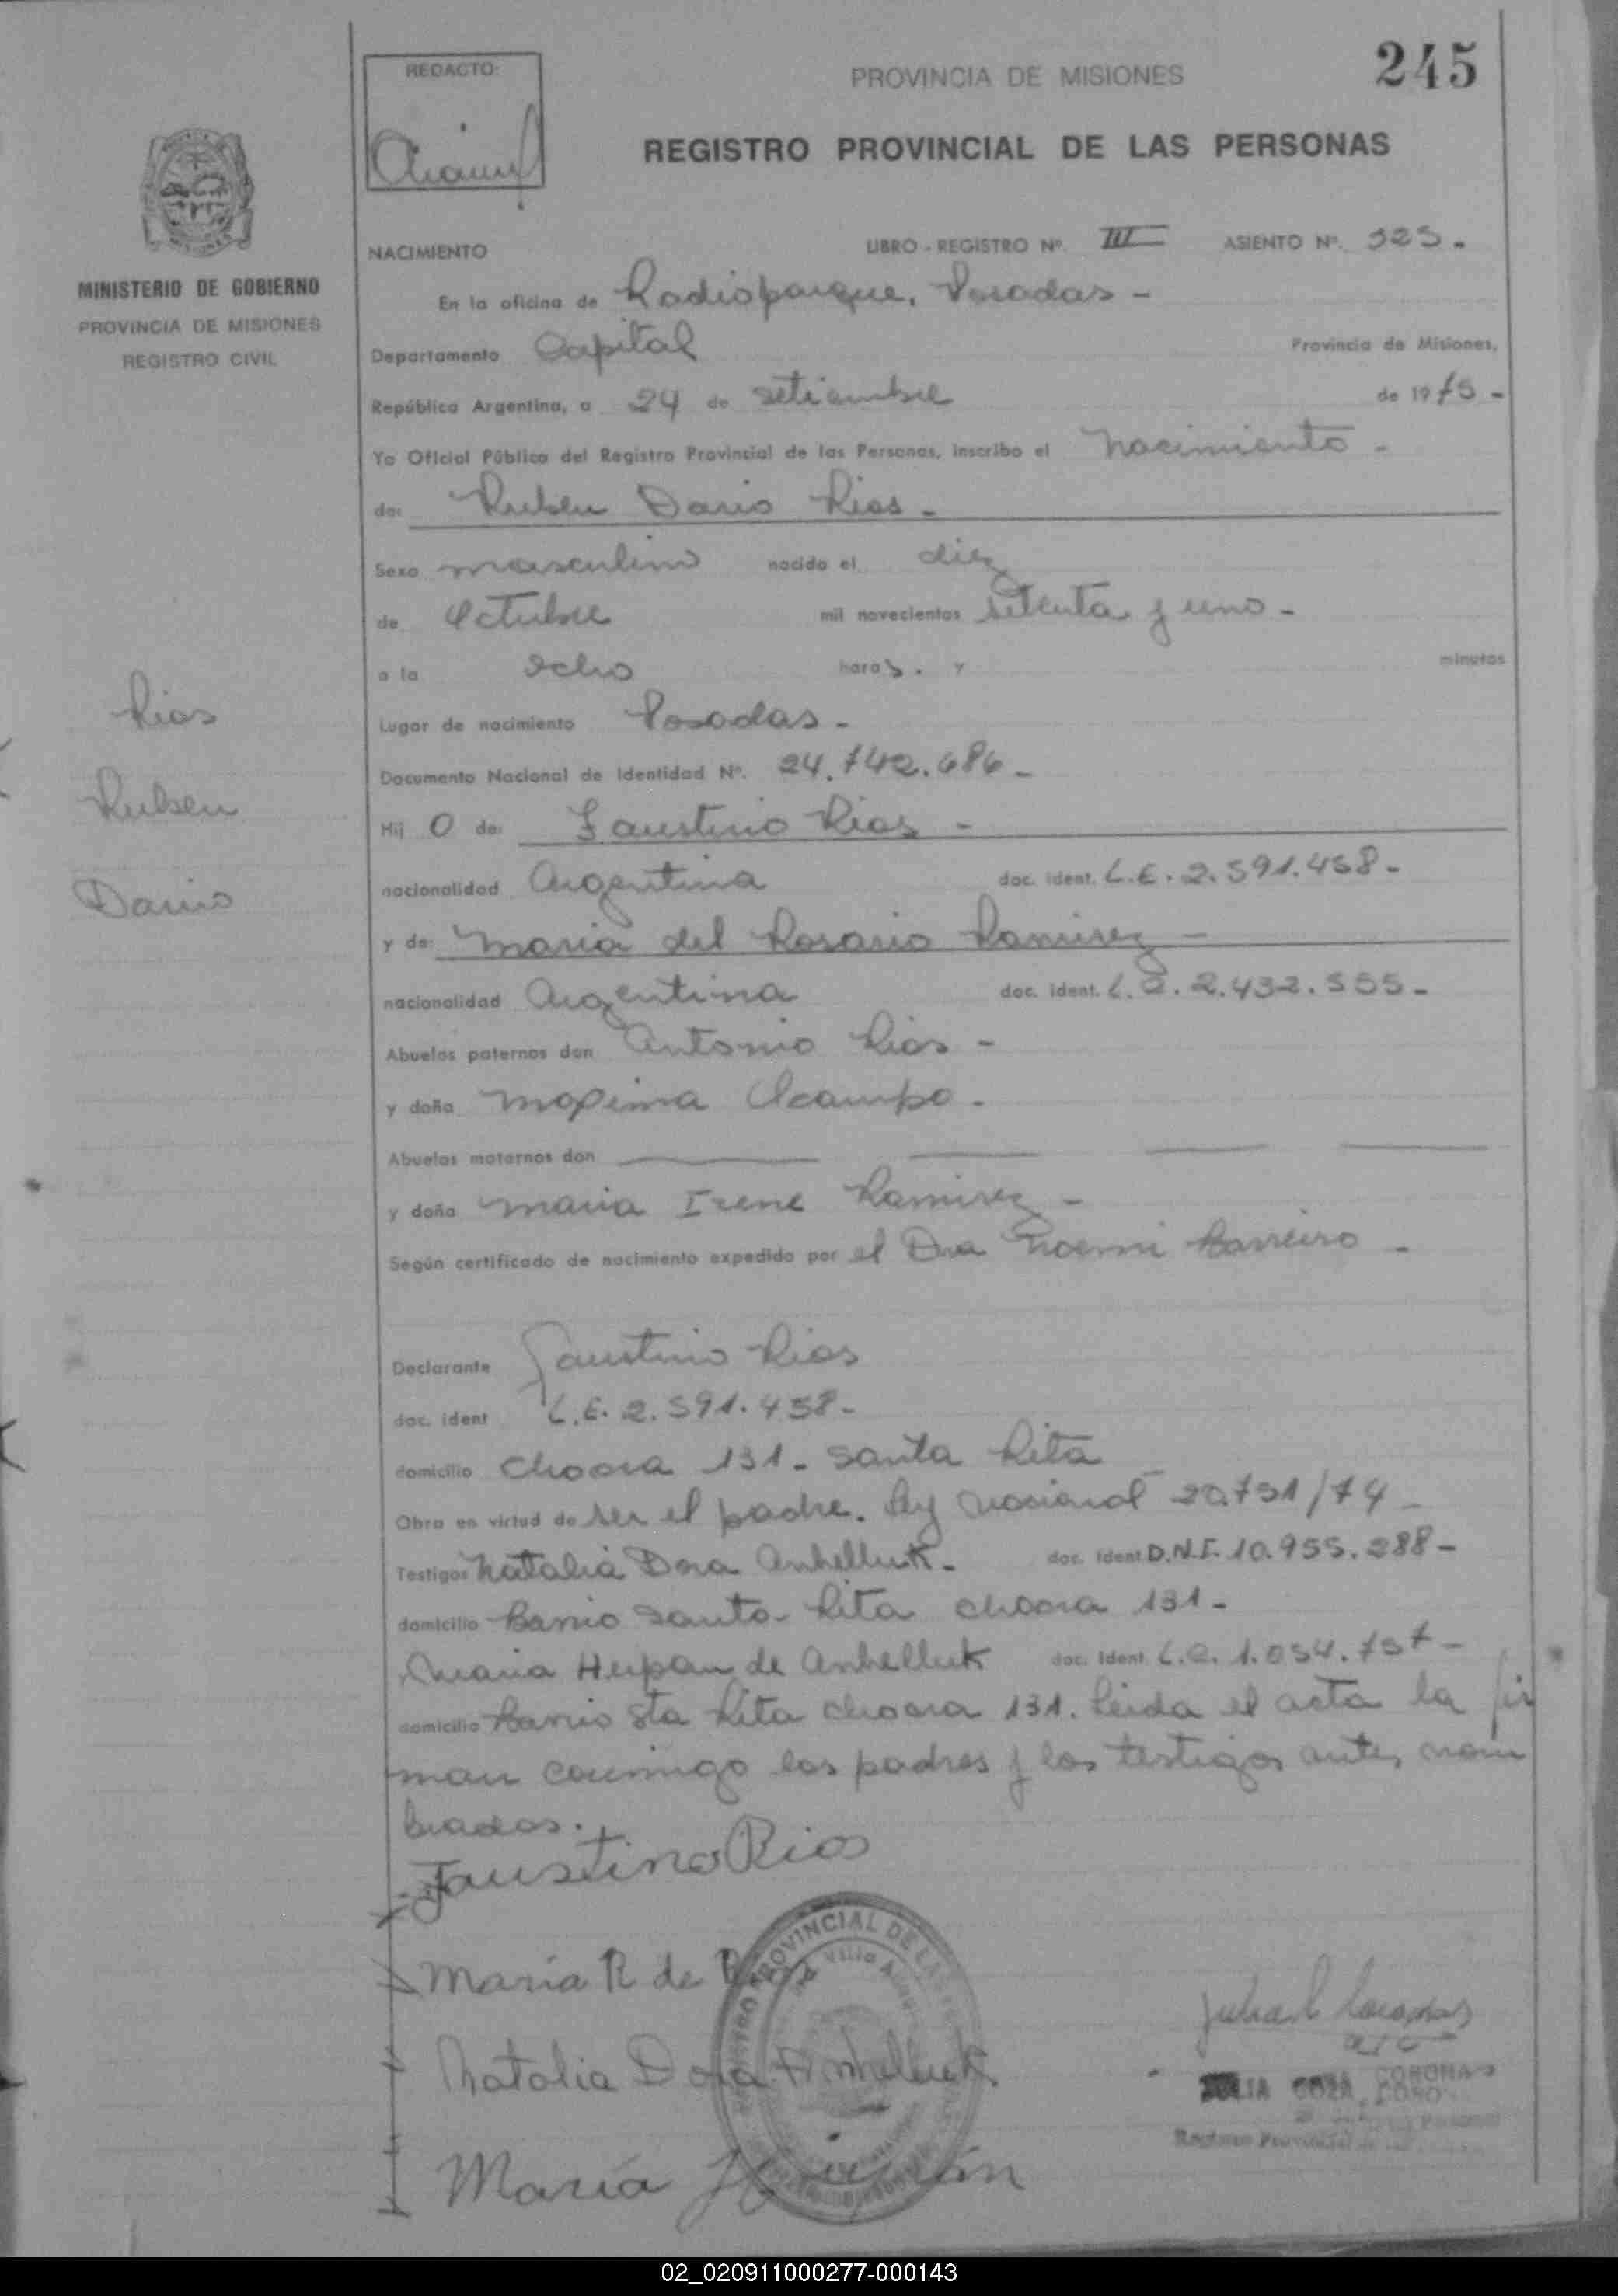 245
REDACTO:
PROVINCIA DE MISIONES
REGISTRO PROVINCIAL DE LAS PERSONAS
MINISTERIO DE GOBIERNO
PROVINCIA DE MISIONES
REGISTRO CIVIL
NACIMIENTO LIBRO - REGISTRO Nº. III ASIENTO Nº. 323.-
En la oficina de Radioparque, Posadas -
Departamento Capital Provincia de Misiones,
República Argentina, a 24 de setiembre de 1975 -
Yo Oficial Público del Registro Provincial de las Personas, inscribo el nacimiento -
de: Ruben Dario Rios -
Sexo masculino nacido el diez
de Octubre mil novecientos setenta y uno -
a la ocho horas. y minutos
Rios
Ruben
Dario
Lugar de nacimiento Posadas -
Documento Nacional de Identidad Nº. 24.742.686 -
Hij o de: Faustino Rios -
nacionalidad Argentina doc. ident. L.E. 2.591.458 -
y de: Maria del Rosario Ramirez -
nacionalidad Argentina doc. ident. L.C. 2.432.555 -
Abuelos paternos don Antonio Rios -
y doña Maxima Ocampo -
Abuelos maternos don
y doña Maria Irene Ramirez -
Según certificado de nacimiento expedido por el Dra Noemi Barreiro -
Declarante Faustino Rios
doc. ident L.E. 2.591.458 -
domicilio Chacra 131 - Santa Rita
Obra en virtud de ser el padre. Ley Nacional 20.751/74 -
Testigos Natalia Dora Anhelluk - doc. Ident D.N.I. 10.955.288 -
domicilio Barrio Santa Rita chacra 131 -
Maria Hupan de Anhelluk doc. Ident L.C. 1.054.757 -
domicilio Barrio Sta Rita chacra 131. Leida el acta la fir
man conmigo los padres y los testigos antes nom
brados.
Faustino Rios
Maria R de
Natalia Dora Anhelluk
Maria
REGISTRO PROVINCIAL DE LAS
Villa
JULIA CORONA
Registro Provincial de
02_020911000277-000143